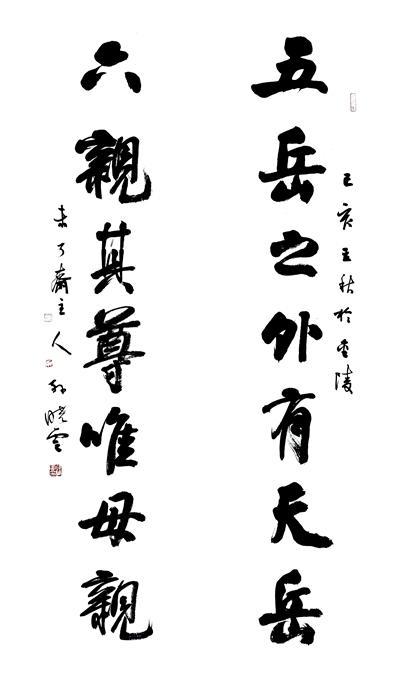 己亥立秋於金陵
五岳之外有天岳
六親其尊唯母親
未了齋主人孙晓雲